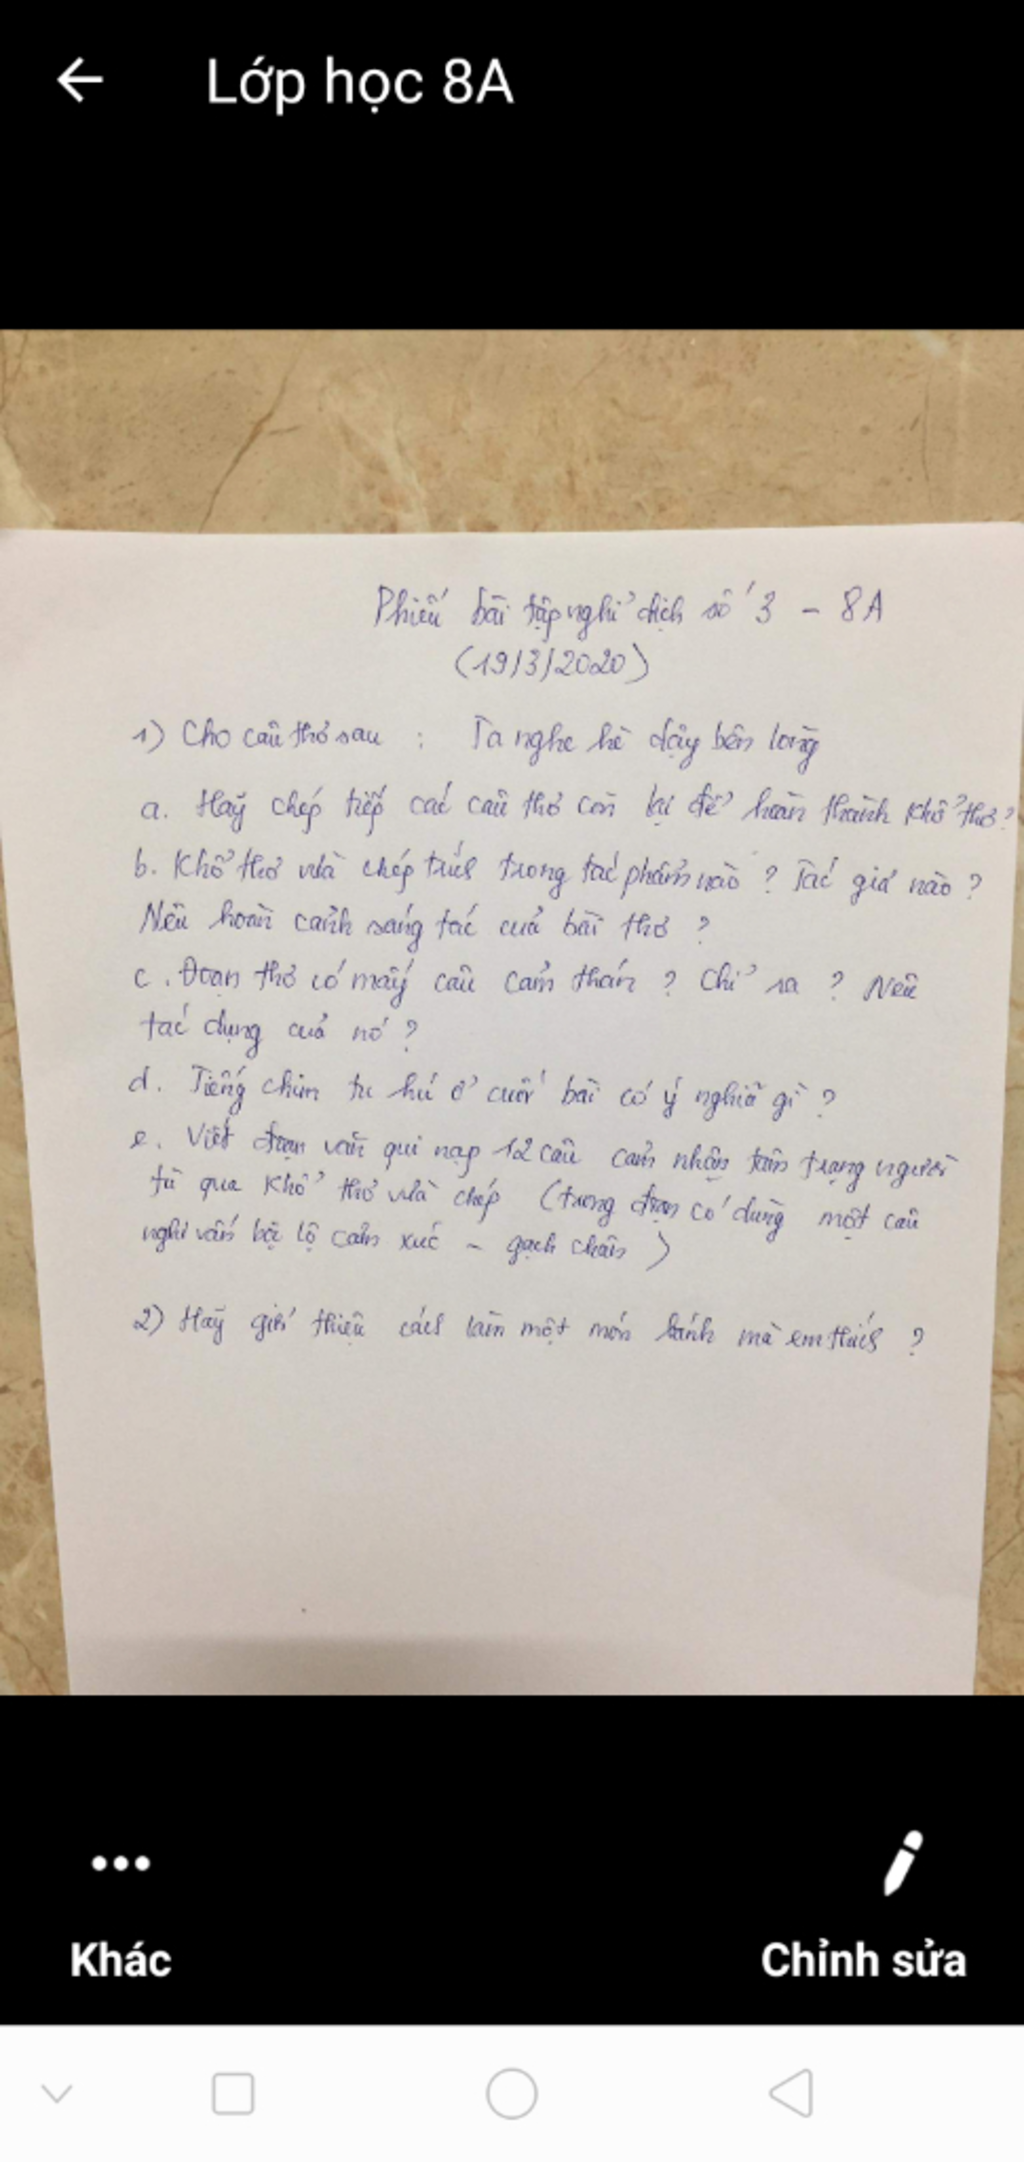 Lớp học 8A
Phiếu bài tập nghỉ dịch số 3 - 8A
(19/3/2020)
1) Cho câu thơ sau : Ta nghe hè dậy bên lòng
a. Hãy chép tiếp các câu thơ còn lại để hoàn thành khổ thơ?
b. Khổ thơ vừa chép trích trong tác phẩm nào ? Tác giả nào ?
Nêu hoàn cảnh sáng tác của bài thơ ?
c. Đoạn thơ có mấy câu cảm thán ? Chỉ ra ? Nêu
tác dụng của nó ?
d. Tiếng chim tu hú ở cuối bài có ý nghĩa gì ?
e. Viết đoạn văn qui nạp 12 câu cảm nhận tâm trạng người
tù qua khổ thơ vừa chép (trong đoạn có dùng một câu
nghi vấn bộc lộ cảm xúc - gạch chân)
2) Hãy giới thiệu cách làm một món bánh mà em thích ?
Khác
Chỉnh sửa